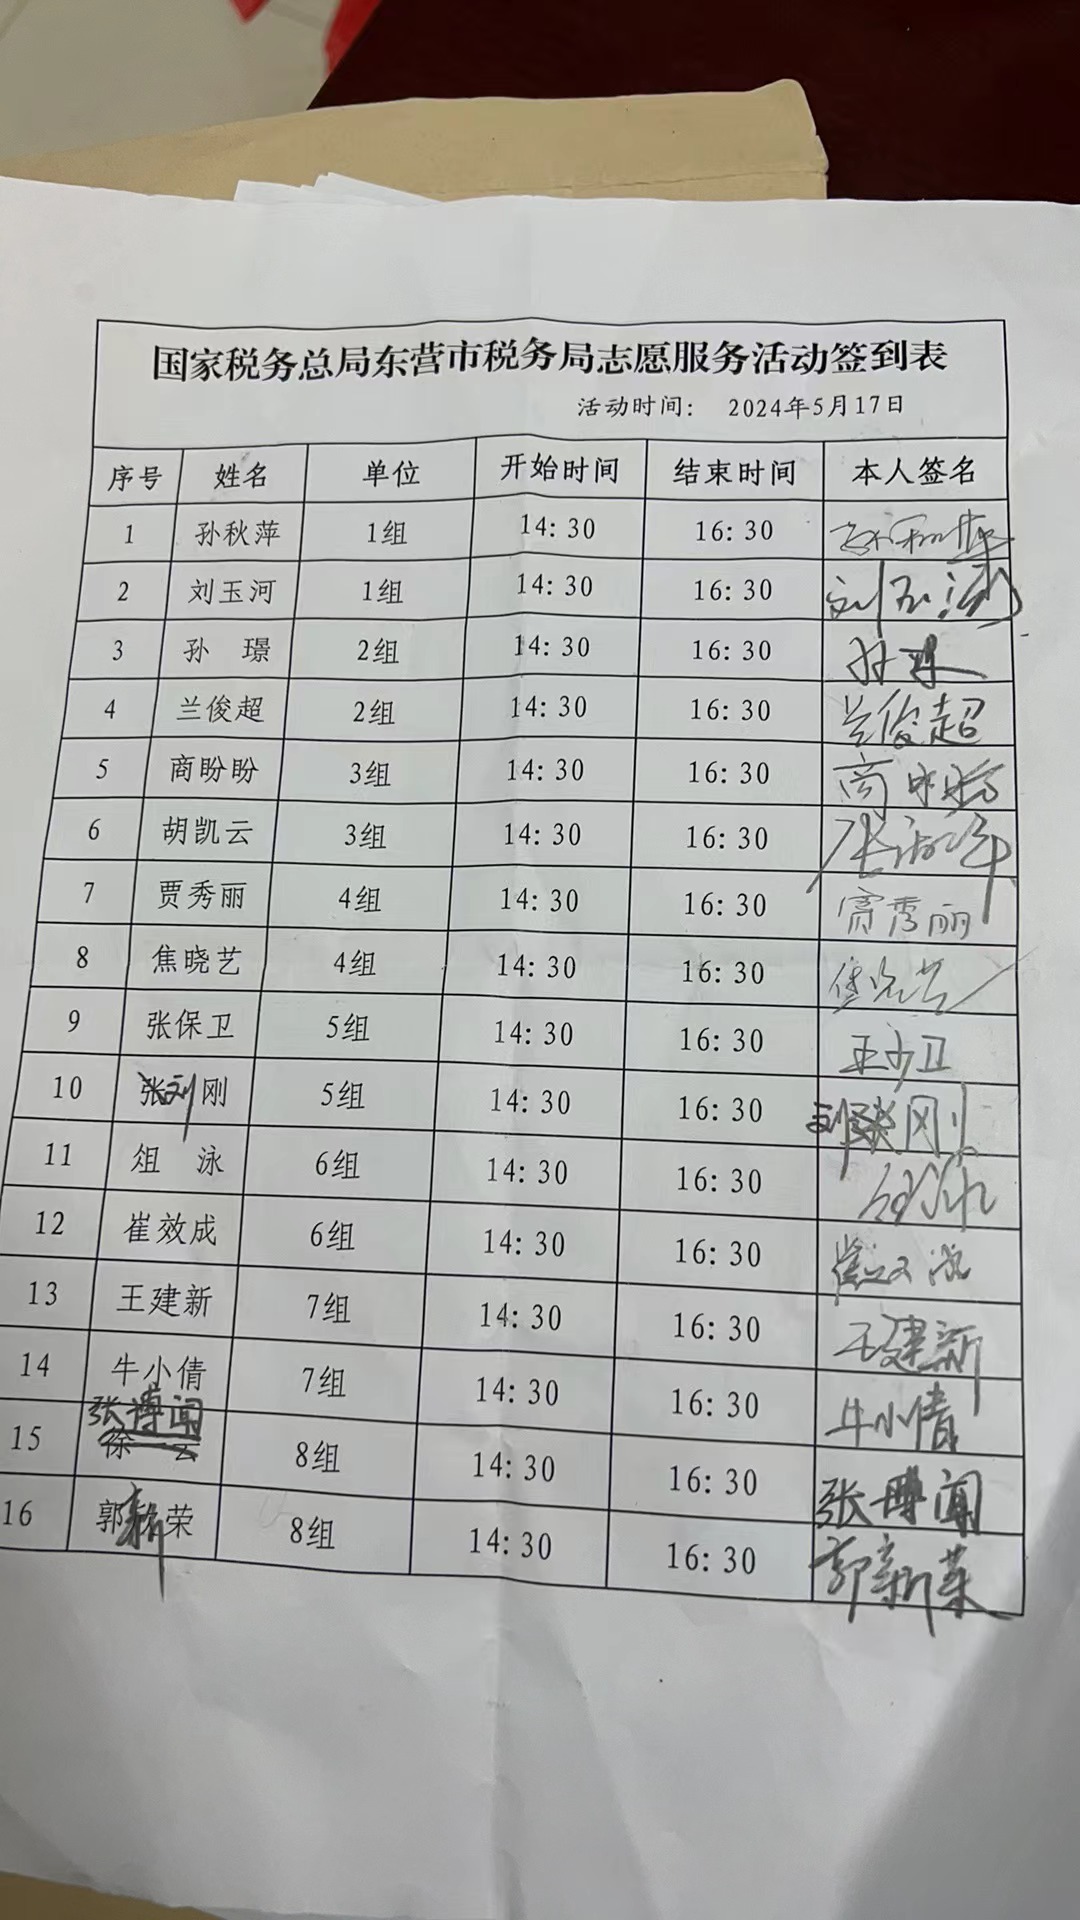 国家税务总局东营市税务局志愿服务活动签到表
活动时间： 2024年5月17日
序号 姓名 单位 开始时间 结束时间 本人签名
1 孙秋萍 1组 14:30 16:30 孙秋萍
2 刘玉河 1组 14:30 16:30 刘玉河
3 孙 璟 2组 14:30 16:30 孙
4 兰俊超 2组 14:30 16:30 兰俊超
5 商盼盼 3组 14:30 16:30 商盼盼
6 胡凯云 3组 14:30 16:30
7 贾秀丽 4组 14:30 16:30 贾秀丽
8 焦晓艺 4组 14:30 16:30 焦晓艺
9 张保卫 5组 14:30 16:30
10 刘刚 5组 14:30 16:30 刘刚
11 俎 泳 6组 14:30 16:30 俎泳
12 崔效成 6组 14:30 16:30 崔效成
13 王建新 7组 14:30 16:30 王建新
14 牛小倩 7组 14:30 16:30 牛小倩
张博闻
15 徐 云 8组 14:30 16:30 张博闻
16 郭新荣 8组 14:30 16:30 郭新荣